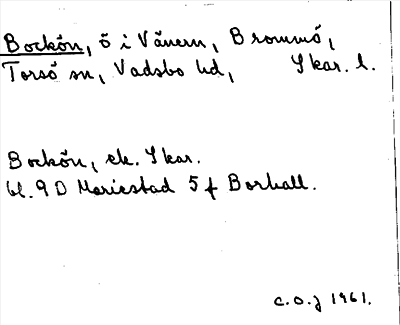 Bockön, ö i Vänern, Brommö,
Torsö sn, Vadsbo hd, Skar. l.
Bockön, ek. Skar.
bl. 9D Mariestad 5f Borhall.
C.O.J 1961.